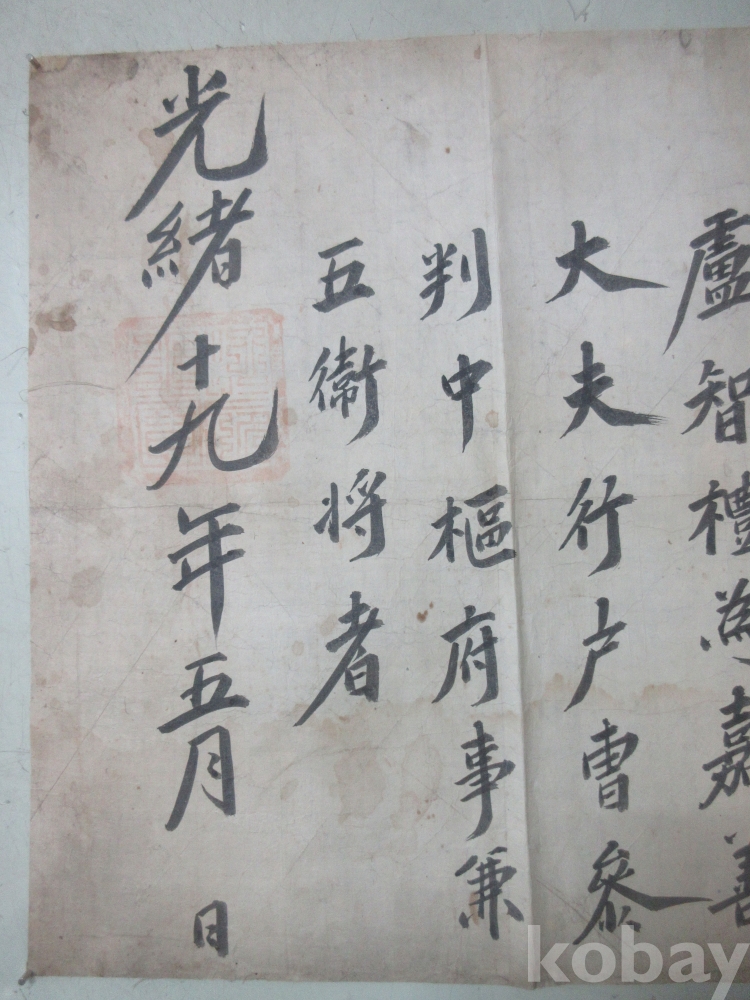 盧智禮為嘉善
大夫行户曺叅
判中樞府事兼
五衛将者
光緒十九年五月 日
kobay